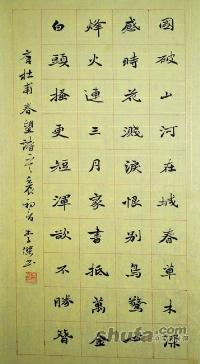 國破山河在城春草木深
感時花濺淚恨別鳥驚心
烽火連三月家書抵萬金
白頭搔更短渾欲不勝簪
杜甫春望詩
shufa.com